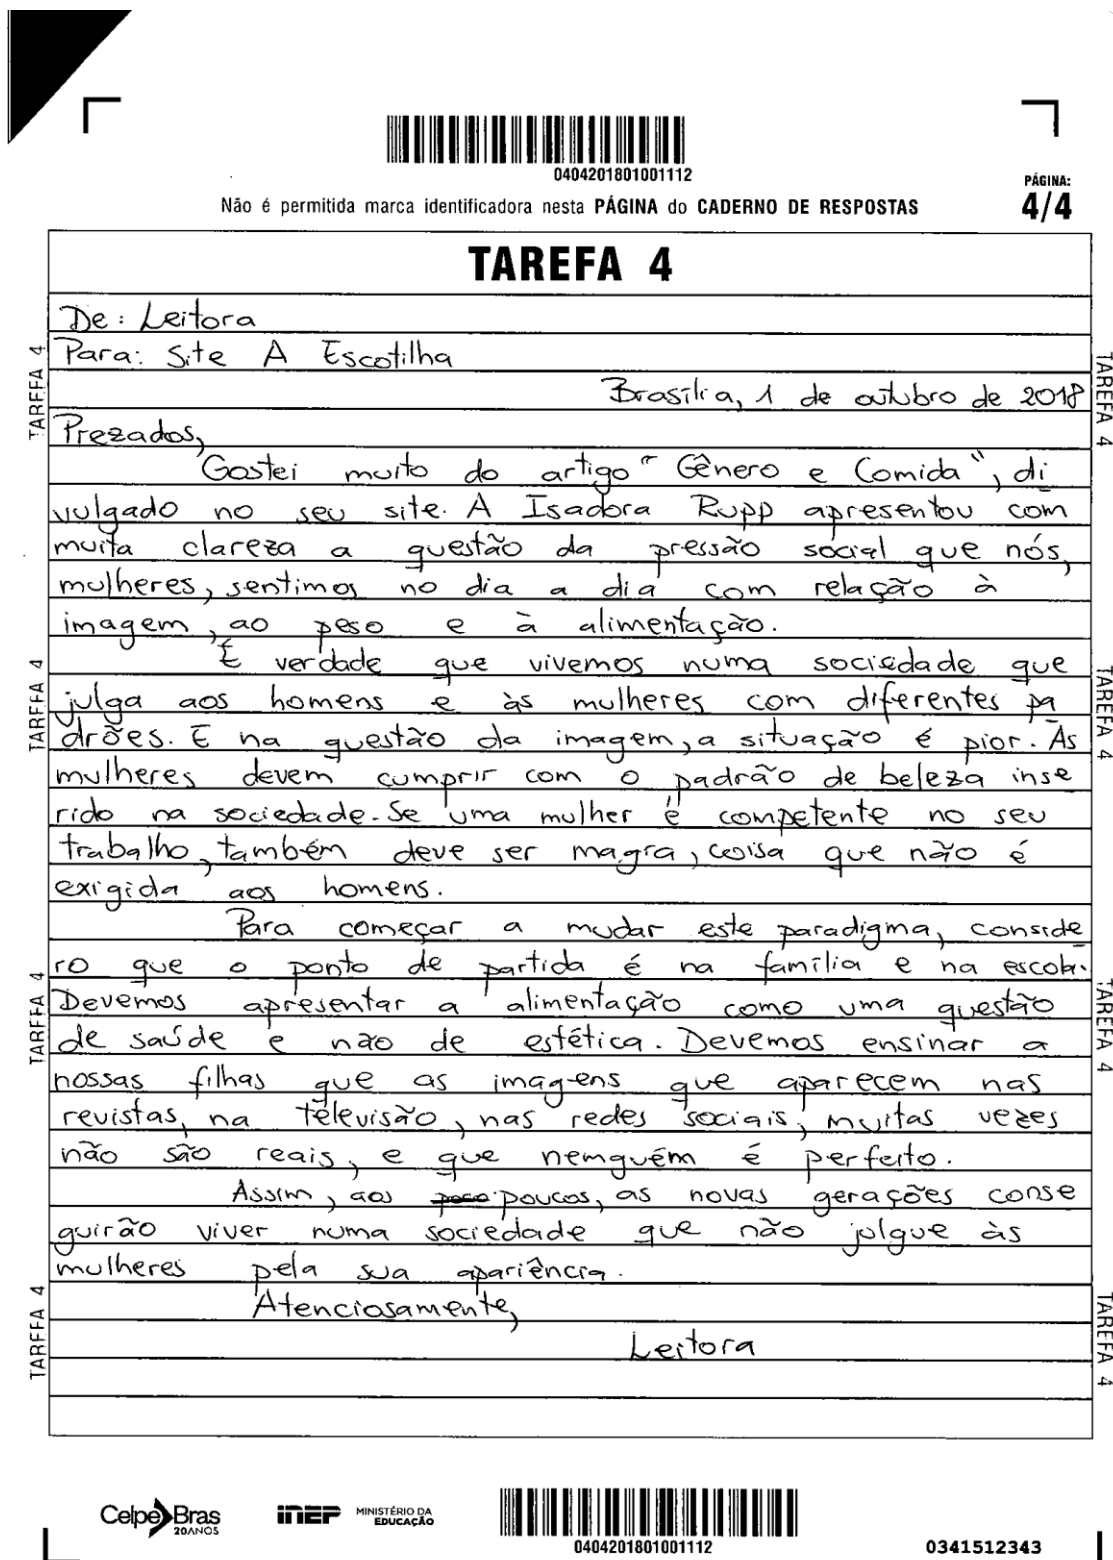 0404201801001112
Não é permitida marca identificadora nesta PÁGINA do CADERNO DE RESPOSTAS
PÁGINA:
4/4
TAREFA 4
De: Leitora
Para: Site A Escotilha
Brasília, 1 de outubro de 2018
Prezados,
Gostei muito do artigo "Gênero e Comida", di
vulgado no seu site. A Isadora Rupp apresentou com
muita clareza a questão da pressão social que nós,
mulheres, sentimos no dia a dia com relação à
imagem, ao peso e à alimentação.
É verdade que vivemos numa sociedade que
julga aos homens e às mulheres com diferentes pa
drões. E na questão da imagem, a situação é pior. As
mulheres devem cumprir com o padrão de beleza inse
rido na sociedade. Se uma mulher é competente no seu
trabalho, também deve ser magra, coisa que não é
exigida aos homens.
Para começar a mudar este paradigma, conside
ro que o ponto de partida é na família e na escola.
Devemos apresentar a alimentação como uma questão
de saúde e não de estética. Devemos ensinar a
nossas filhas que as imagens que aparecem nas
revistas, na televisão, nas redes sociais, muitas vezes
não são reais, e que nemguém é perfeito.
Assim, aos poucos, as novas gerações conse
guirão viver numa sociedade que não julgue às
mulheres pela sua apariência.
Atenciosamente,
Leitora
TAREFA 4
TAREFA 4
TAREFA 4
TAREFA 4
TAREFA 4
TAREFA 4
TAREFA 4
TAREFA 4
Celpe Bras
20 ANOS
inep
MINISTÉRIO DA
EDUCAÇÃO
0404201801001112
0341512343